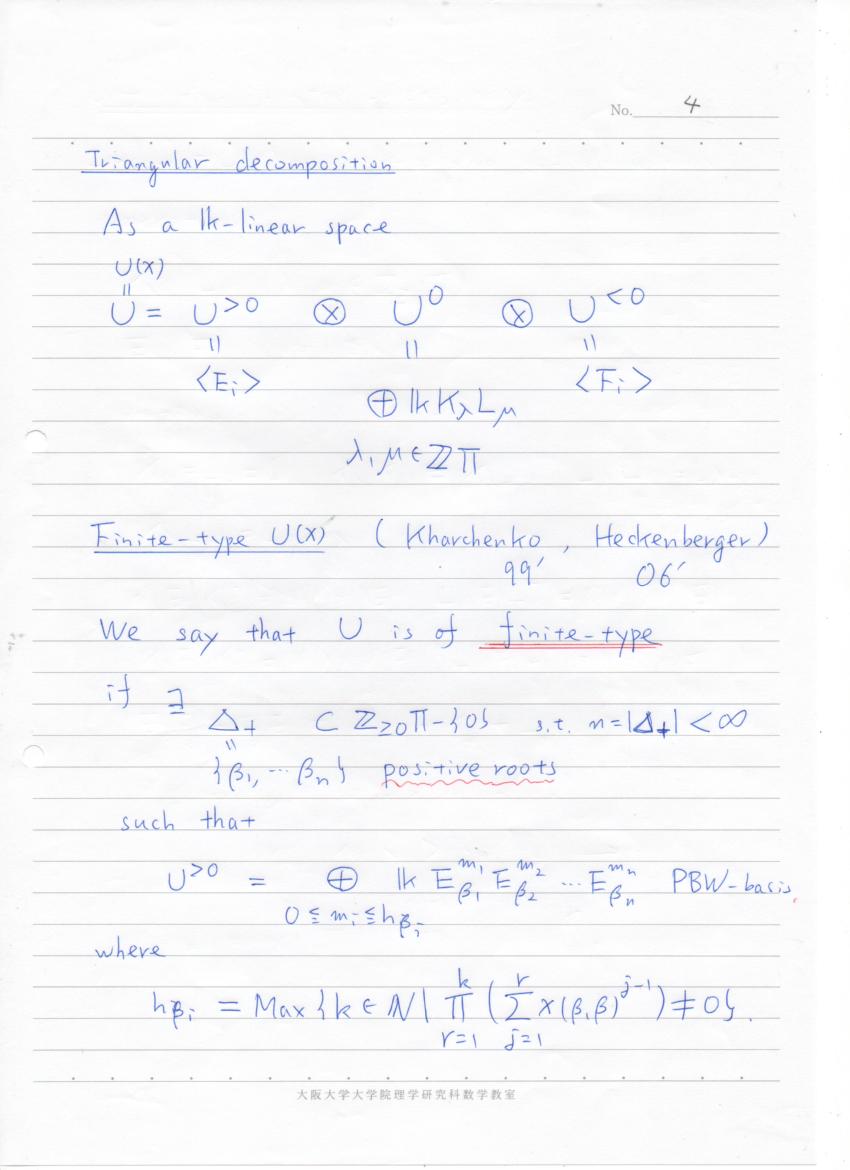 No. 4
Triangular decomposition
As a 𝕜-linear space
U(χ)
||
U = U^{>0} ⊗ U^0 ⊗ U^{<0}
|| || ||
<E_i> <F_i>
⊕ 𝕜 K_λ L_μ
λ, μ ∈ ℤΠ
Finite-type U(χ) (Kharchenko, Heckenberger)
99′ 06′
We say that U is of finite-type
if ∃
Δ_+ ⊂ ℤ_{≥0}Π-{0} s.t. n=|Δ_+| < ∞
||
{β_1, … β_n} positive roots
such that
U^{>0} = ⊕ 𝕜 E_{β_1}^{m_1} E_{β_2}^{m_2} … E_{β_n}^{m_n} PBW-basis,
0 ≦ m_i ≦ h_{β_i}
where
h_{β_i} = Max{k ∈ ℕ | ∏_{r=1}^{k} (∑_{j=1}^{r} χ(β,β)^{j-1}) ≠ 0}.
大阪大学大学院理学研究科数学教室